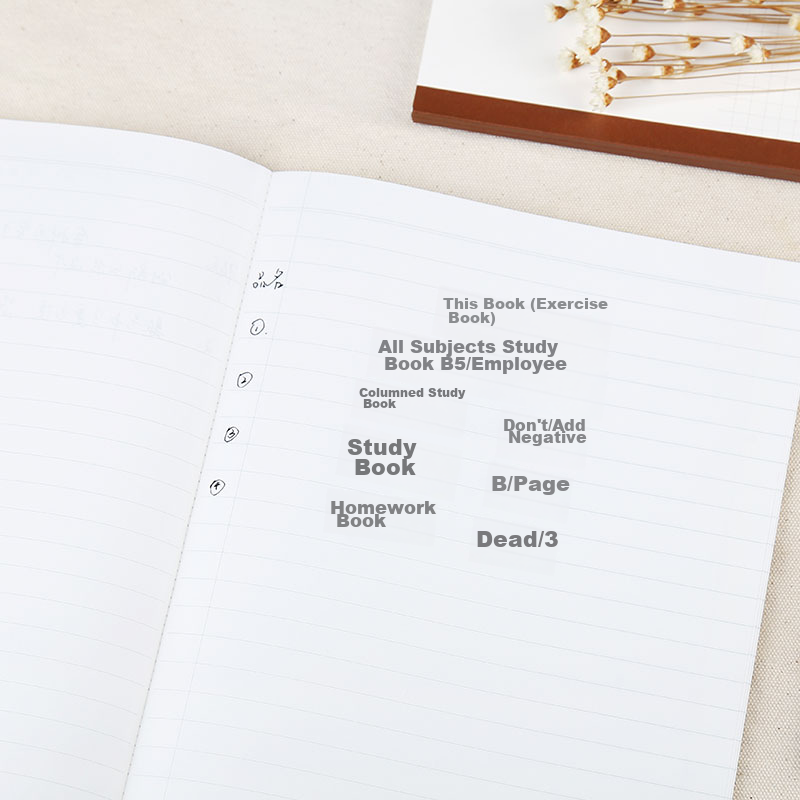 品名
This Book (Exercise
Book)
①.
All Subjects Study
Book B5/Employee
②
Columned Study
Book
Don't/Add
Negative
③
Study
Book
B/Page
④
Homework
Book
Dead/3